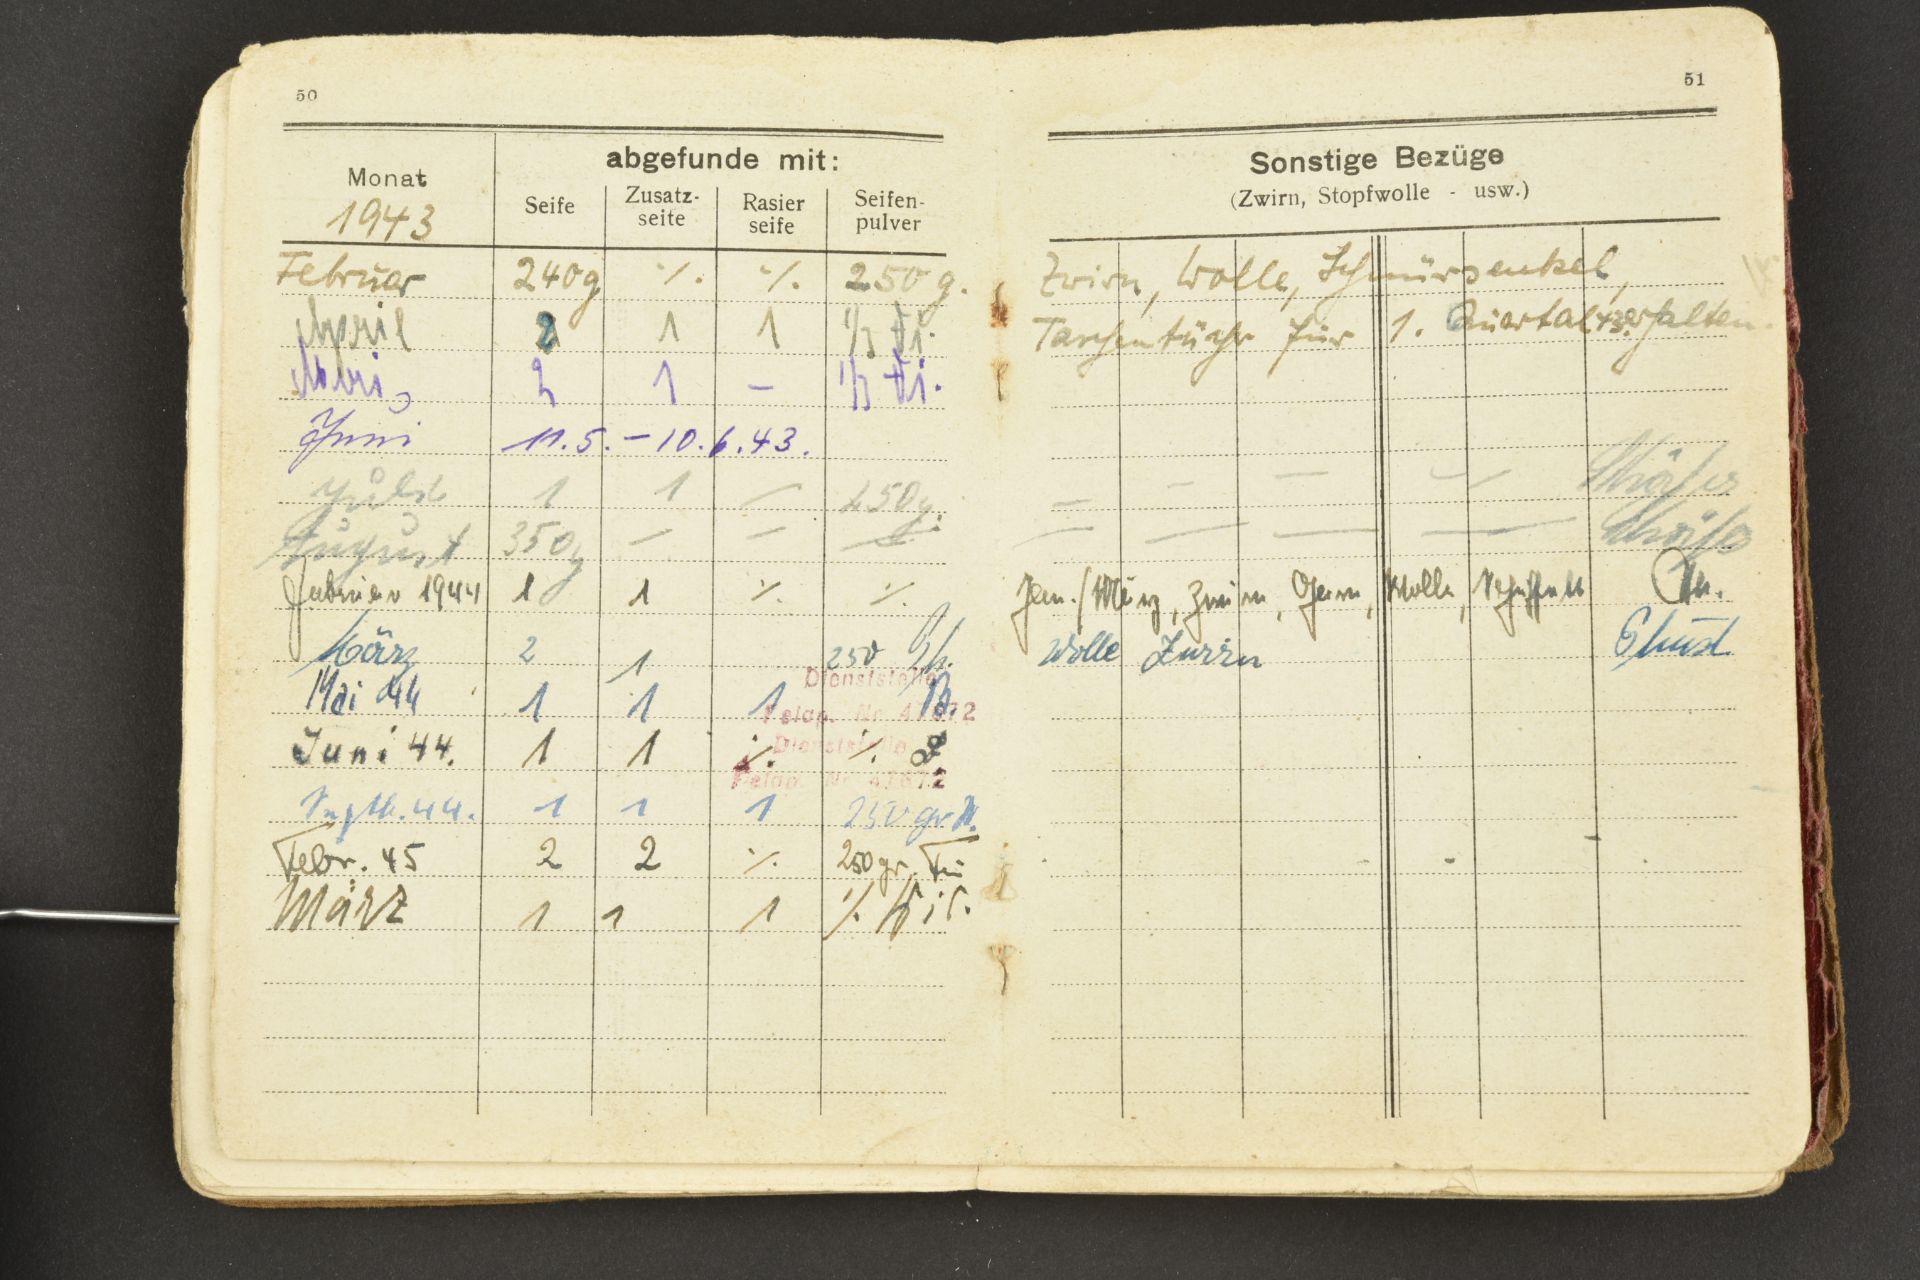 50
Monat
1943
abgefunde mit:
Seife
Zusatz-
seite
Rasier
seife
Seifen-
pulver
Februar 240g ·/. ·/. 250 g.
April 2 1 1
2 1 –
Juni 11.5. – 10.6.43.
Juli 1 1 – 250g.
August 350g – – –
Februar 1944 1 1 ·/. ·/.
März 2 1 250
Dienststelle
Mai 44 1 1 1
Feldp. Nr. 47672
Juni 44. 1 1 ·/. ·/.
Dienststelle
Feldp. Nr. 47672
Septb. 44. 1 1 1 250 gr
Febr. 45 2 2 ·/. 250 gr.
März 1 1 1 ·/.
51
Sonstige Bezüge
(Zwirn, Stopfwolle - usw.)
Zwirn, Wolle, Schnürsenkel,
Taschentücher für 1. Quartal 43 erhalten.
– – – –
– – – –
Jan./März, Zwirn, Garn, Wolle,
Wolle Zwirn